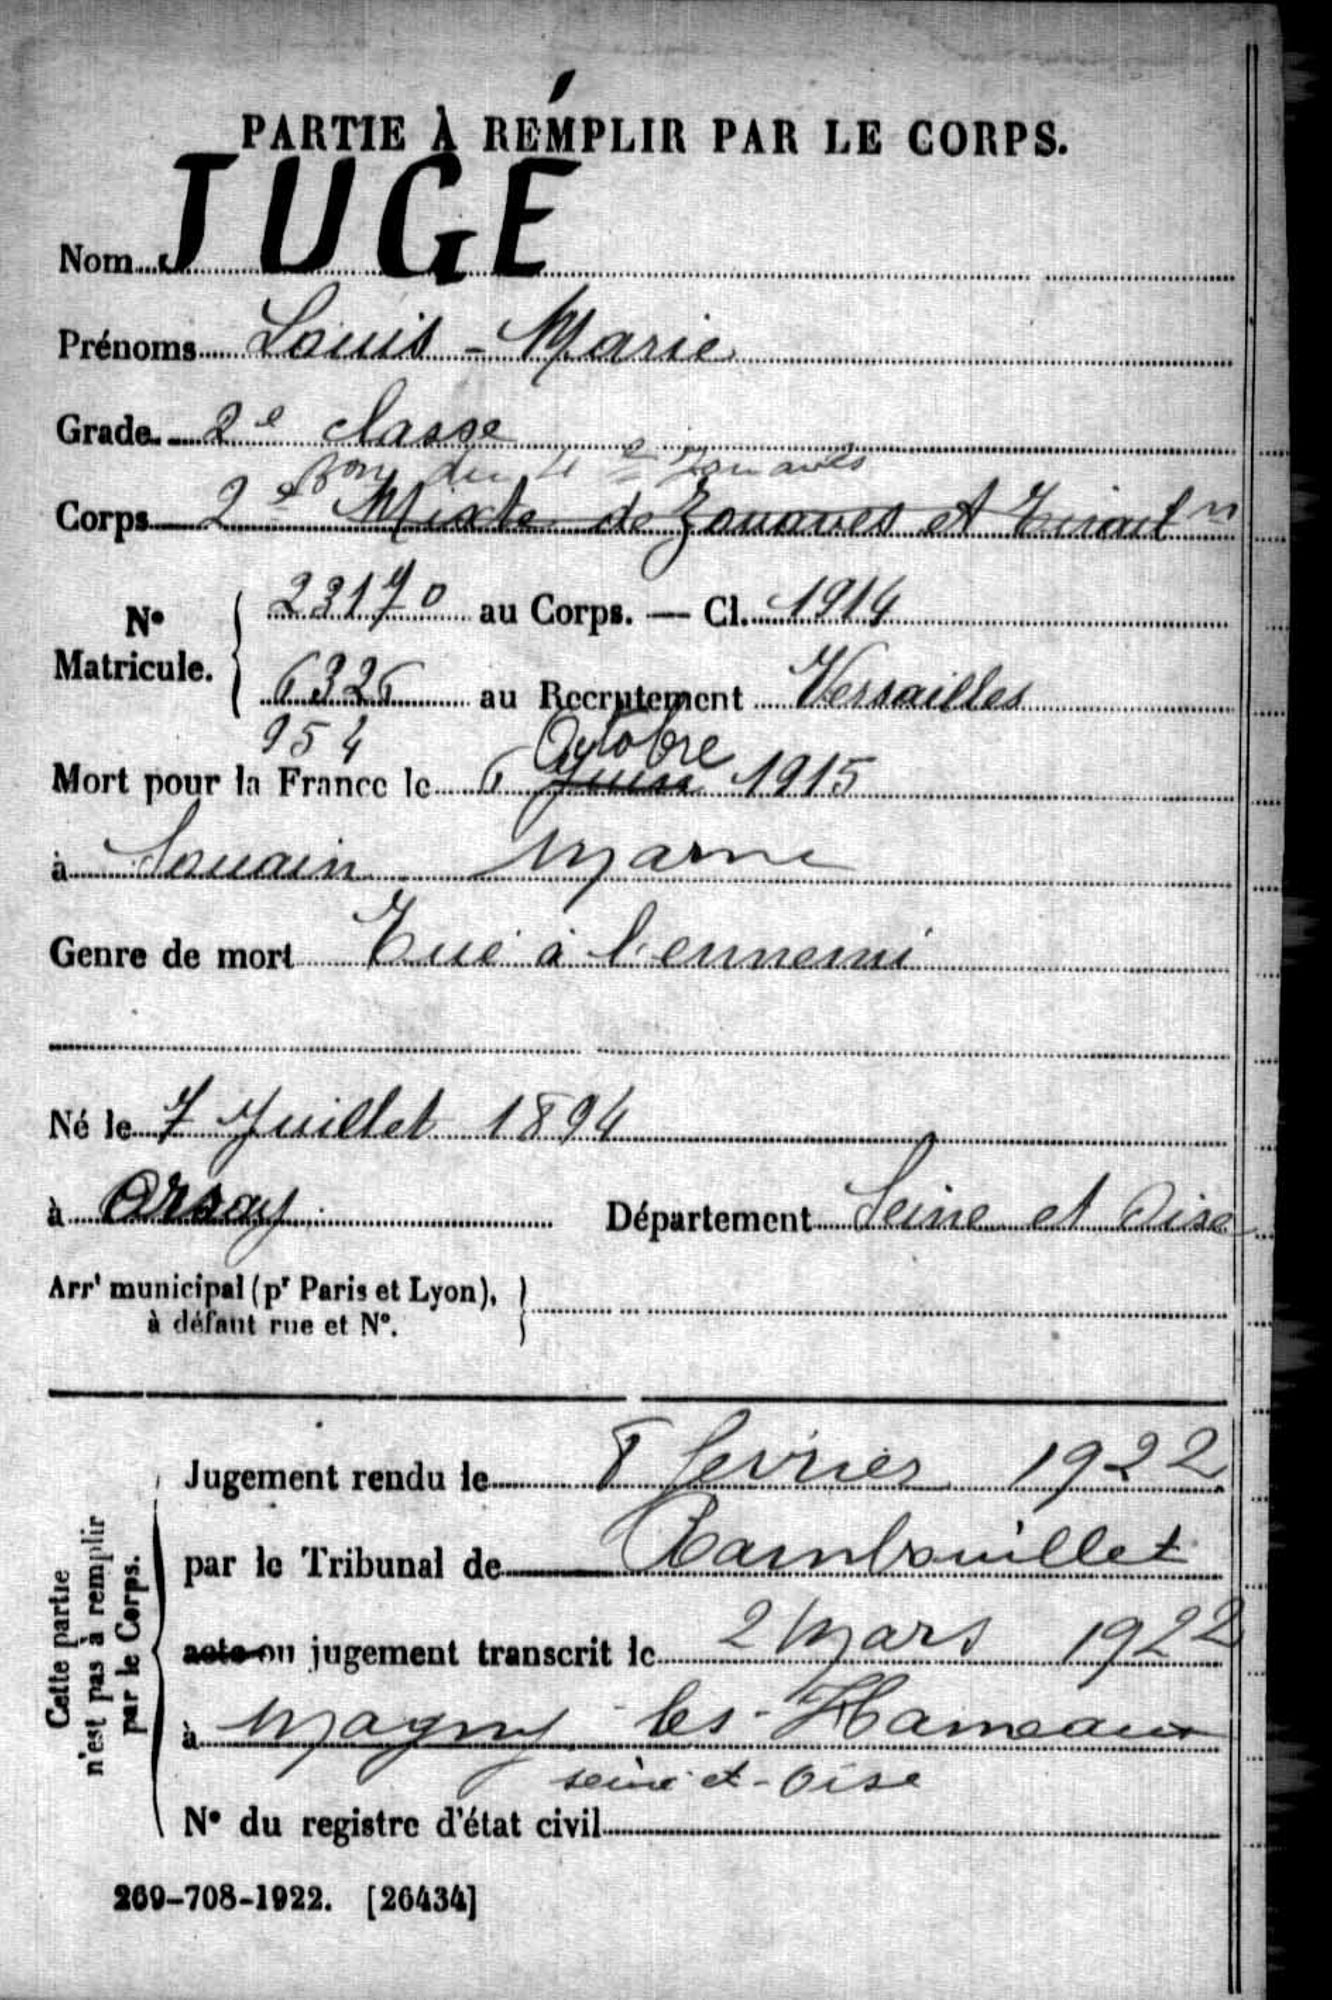 PARTIE À REMPLIR PAR LE CORPS.
Nom JUGÉ
Prénoms Louis-Marie
Grade 2e classe
Bon du 4e Zouaves
Corps 2e Mixte de Zouaves et Tiraillrs
No Matricule. 23170 au Corps. — Cl. 1914
6326 au Recrutement Versailles
954
Octobre
Mort pour la France le 6 Juin 1915
à Souain Marne
Genre de mort Tué à l'ennemi
Né le 7 Juillet 1894
à Orsay Département Seine et Oise
Arrt municipal (pr Paris et Lyon),
à défaut rue et No.
Cette partie
n'est pas à remplir
par le Corps.
Jugement rendu le 8 fevrier 1922
par le Tribunal de Rambouillet
acte ou jugement transcrit le 2 Mars 1922
à Magny les Hameaux
seine-et-Oise
No du registre d'état civil
269-708-1922. [26434]